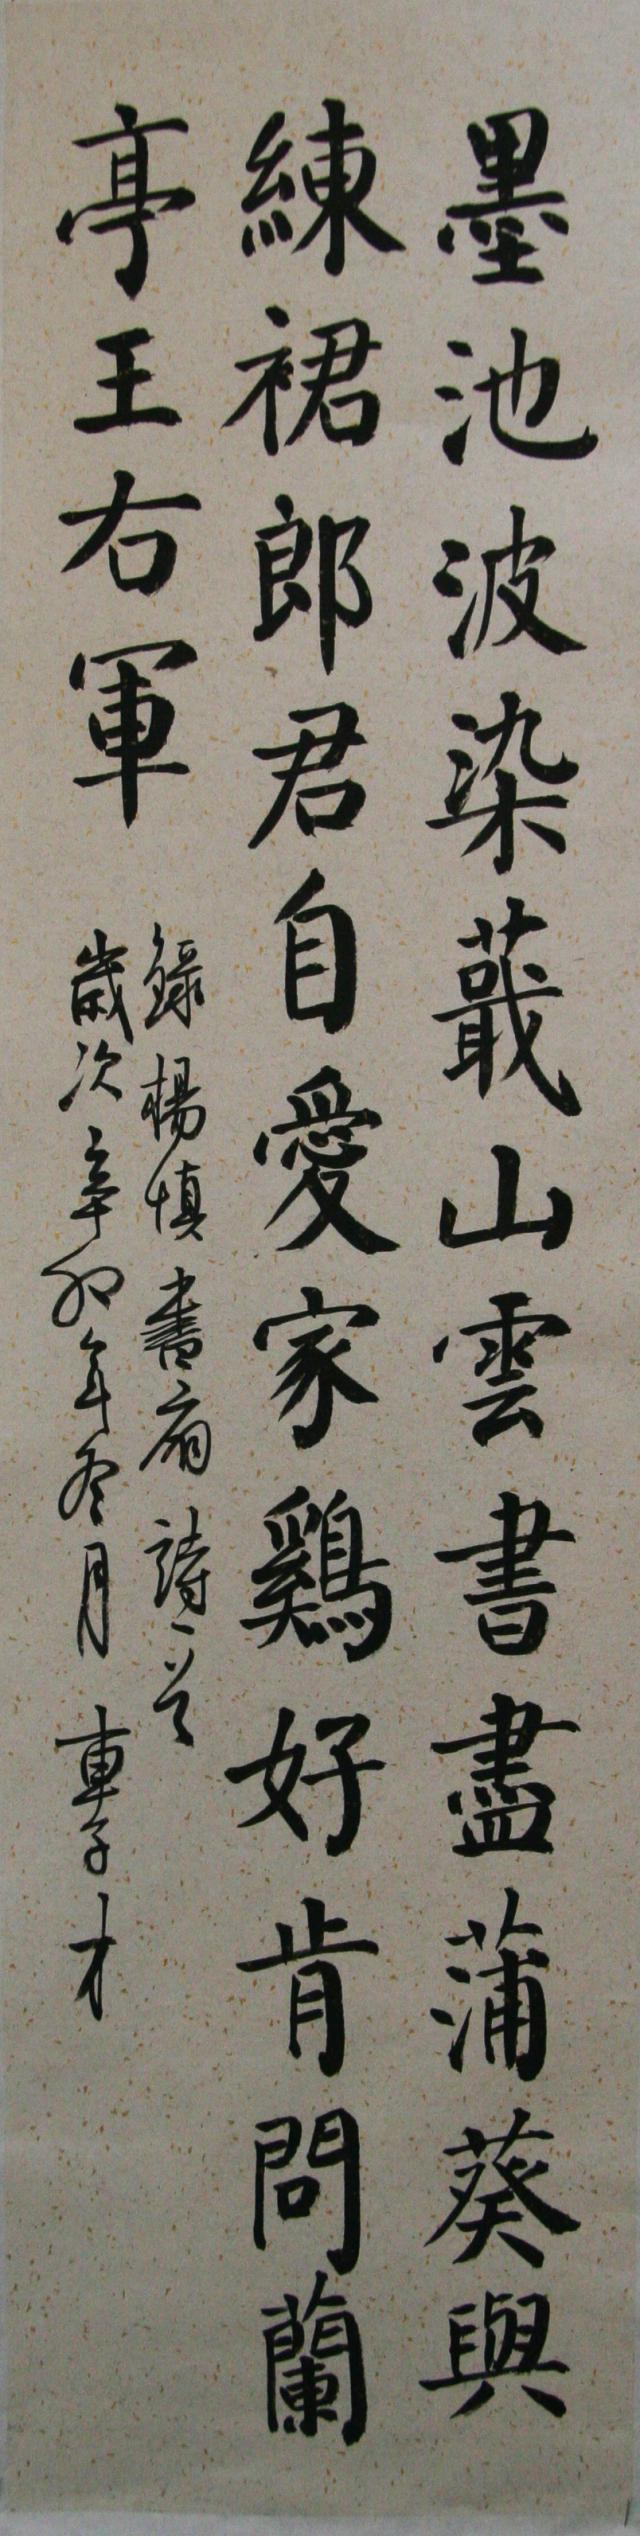 墨池波染蕺山雲書盡蒲葵與
練裙郎君自愛家鷄好肯問蘭
亭王右軍
錄楊慎書扇詩一首
歲次辛卯年冬月 車子才